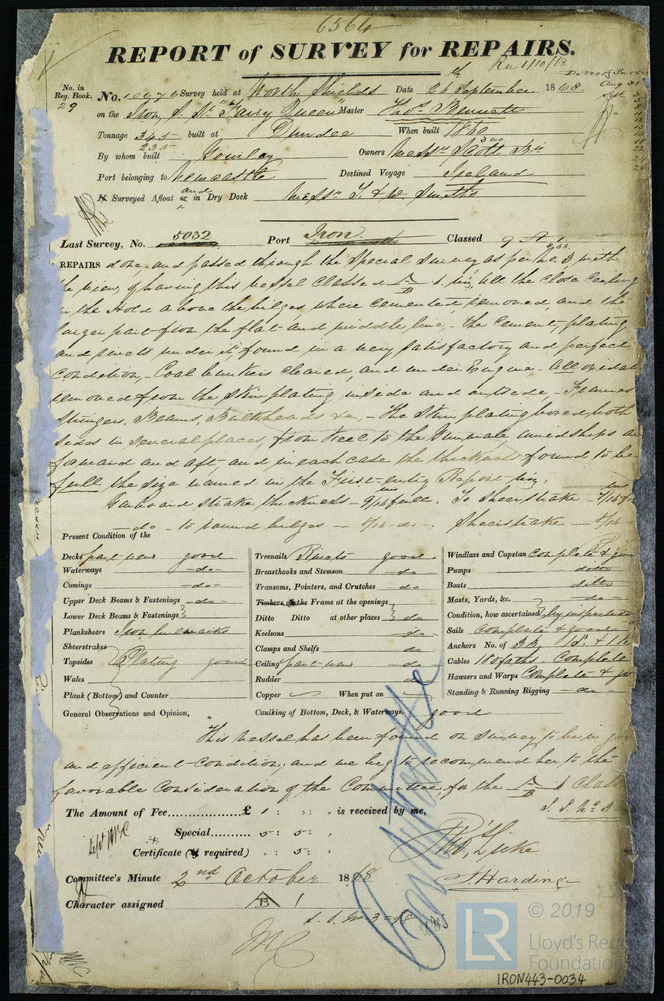 6564
REPORT of SURVEY for REPAIRS.
Rec 1/10/68
No. in Reg. Book. 29
No. Survey held at North Shields Date 26th September 1868
on the Iron S. Sr "Fairy Queen" Master Thos. Bennett
Tonnage 345 built at Dundee When built 1860
235
By whom built Gourlay Owners Messrs Scott Brs
Port belonging to Newcastle Destined Voyage Iceland
If Surveyed Afloat and or in Dry Dock Messrs T. & W. Smiths
Last Survey, No. 5032 Port Iron Classed 9 A
REPAIRS done, and passed through the Special Survey as per No. 3 with
the view of having this vessel Classed A/B 1. viz, all the close Ceiling
in the Hold above the bilges where cemented, removed, and the
larger part from the flat and middle line, - the cement, plating
and rivets under it, found in a very satisfactory and perfect
condition, - Coal bunkers cleared, and under Engine. All oxidation
removed from the skin plating inside and outside, - Frames
Stringers, Beams, Bulkheads &c, - The Skin plating bored both
sides in several places, from Keel to the Gunwale amidships and
forward and aft, and in each case the thickness found to be
full the size named in the First-entry Report viz,
Garboard strake thickness - 9/16 full. To Sheerstrake - 7/16
do - to round bilges - 8/16 - do -. Sheerstrake - 8/16
Present Condition of the
Decks part new good
Waterways do
Comings do
Upper Deck Beams & Fastenings do
Lower Deck Beams & Fastenings
Planksheers Iron bulwarks
Sheerstrakes
Topsides Plating good
Wales
Plank (Bottom) and Counter
General Observations and Opinion,
Treenails Rivets good
Breasthooks and Stemson do
Transoms, Pointers, and Crutches do
Timbers of the Frame at the openings
Ditto Ditto at other places do
Keelsons do
Clamps and Shelfs do
Ceiling part new do
Rudder do
Copper When put on
Caulking of Bottom, Deck, & Waterways good
Windlass and Capstan Complete & good
Pumps ditto
Boats ditto
Masts, Yards, &c. do
Condition, how ascertained by inspection
Sails complete & good
Anchors No. of 3B, 1S. & 1K
Cables 180 faths Complete
Hawsers and Warps Complete & good
Standing & Running Rigging do
This vessel has been found on survey to be in good
and efficient condition, and we beg to recommend her to the
favorable Consideration of the Committee for the A/B 1 Class
S. S. No 3
The Amount of Fee £ 1 : : is received by me,
Special 5 : 5 :
Certificate (if required) : 5 :
Thos. Luke
J. Harding
Committee's Minute 2nd October 1868
Character assigned A/B 1
S. S. No 3 - 68
© 2019
LR
Lloyd's Register Foundation
IRON443-0034